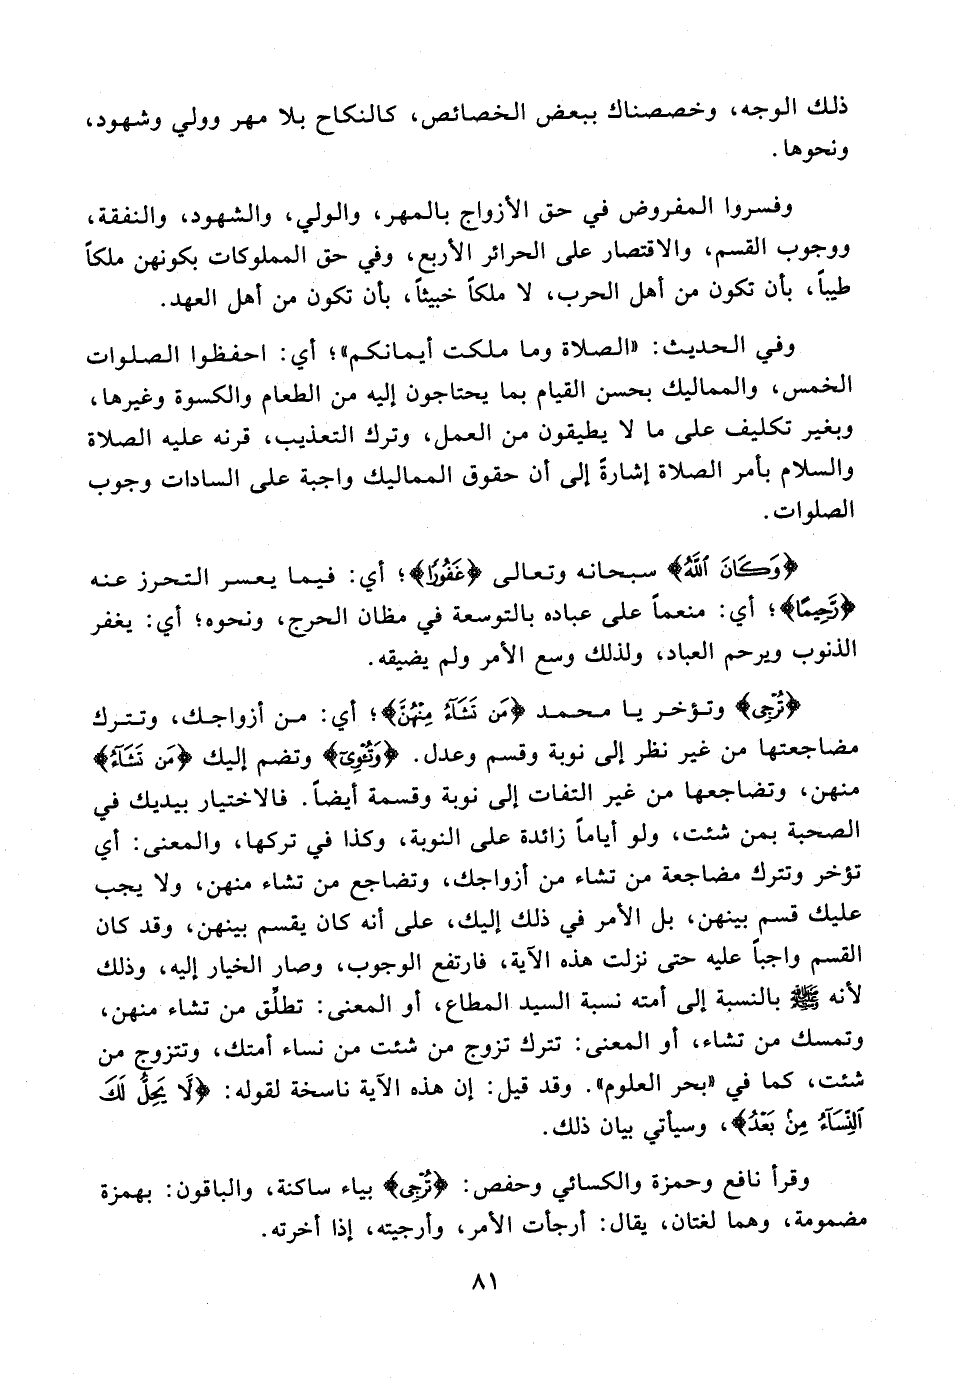 ذلك الوجه، وخصصناك ببعض الخصائص، كالنكاح بلا مهر وولي وشهود،
ونحوها.
وفسروا المفروض في حق الأزواج بالمهر، والولي، والشهود، والنفقة،
ووجوب القسم، والاقتصار على الحرائر الأربع، وفي حق المملوكات بكونهن ملكاً
طيباً، بأن تكون من أهل الحرب، لا ملكاً خبيثاً، بأن تكون من أهل العهد.
وفي الحديث: «الصلاة وما ملكت أيمانكم»؛ أي: احفظوا الصلوات
الخمس، والمماليك بحسن القيام بما يحتاجون إليه من الطعام والكسوة وغيرها،
وبغير تكليف على ما لا يطيقون من العمل، وترك التعذيب، قرنه عليه الصلاة
والسلام بأمر الصلاة إشارةً إلى أن حقوق المماليك واجبة على السادات وجوب
الصلوات.
﴿وَكَانَ ٱللَّهُ﴾ سبحانه وتعالى ﴿غَفُورًا﴾؛ أي: فيما يعسر التحرز عنه
﴿رَّحِيمًا﴾؛ أي: منعماً على عباده بالتوسعة في مظان الحرج، ونحوه؛ أي: يغفر
الذنوب ويرحم العباد، ولذلك وسع الأمر ولم يضيقه.
﴿تُرْجِى﴾ وتؤخر يا محمد ﴿مَن تَشَآءُ مِنْهُنَّ﴾؛ أي: من أزواجك، وتترك
مضاجعتها من غير نظر إلى نوبة وقسم وعدل. ﴿وَتُـْٔوِىٓ﴾ وتضم إليك ﴿مَن تَشَآءُ﴾
منهن، وتضاجعها من غير التفات إلى نوبة وقسمة أيضاً. فالاختيار بيديك في
الصحبة بمن شئت، ولو أياماً زائدة على النوبة، وكذا في تركها، والمعنى: أي
تؤخر وتترك مضاجعة من تشاء من أزواجك، وتضاجع من تشاء منهن، ولا يجب
عليك قسم بينهن، بل الأمر في ذلك إليك، على أنه كان يقسم بينهن، وقد كان
القسم واجباً عليه حتى نزلت هذه الآية، فارتفع الوجوب، وصار الخيار إليه، وذلك
لأنه ﷺ بالنسبة إلى أمته نسبة السيد المطاع، أو المعنى: تطلِّق من تشاء منهن،
وتمسك من تشاء، أو المعنى: تترك تزوج من شئت من نساء أمتك، وتتزوج من
شئت، كما في «بحر العلوم». وقد قيل: إن هذه الآية ناسخة لقوله: ﴿لَّا يَحِلُّ لَكَ
ٱلنِّسَآءُ مِنۢ بَعْدُ﴾، وسيأتي بيان ذلك.
وقرأ نافع وحمزة والكسائي وحفص: ﴿تُرْجِى﴾ بياء ساكنة، والباقون: بهمزة
مضمومة، وهما لغتان، يقال: أرجأت الأمر، وأرجيته، إذا أخرته.
٨١